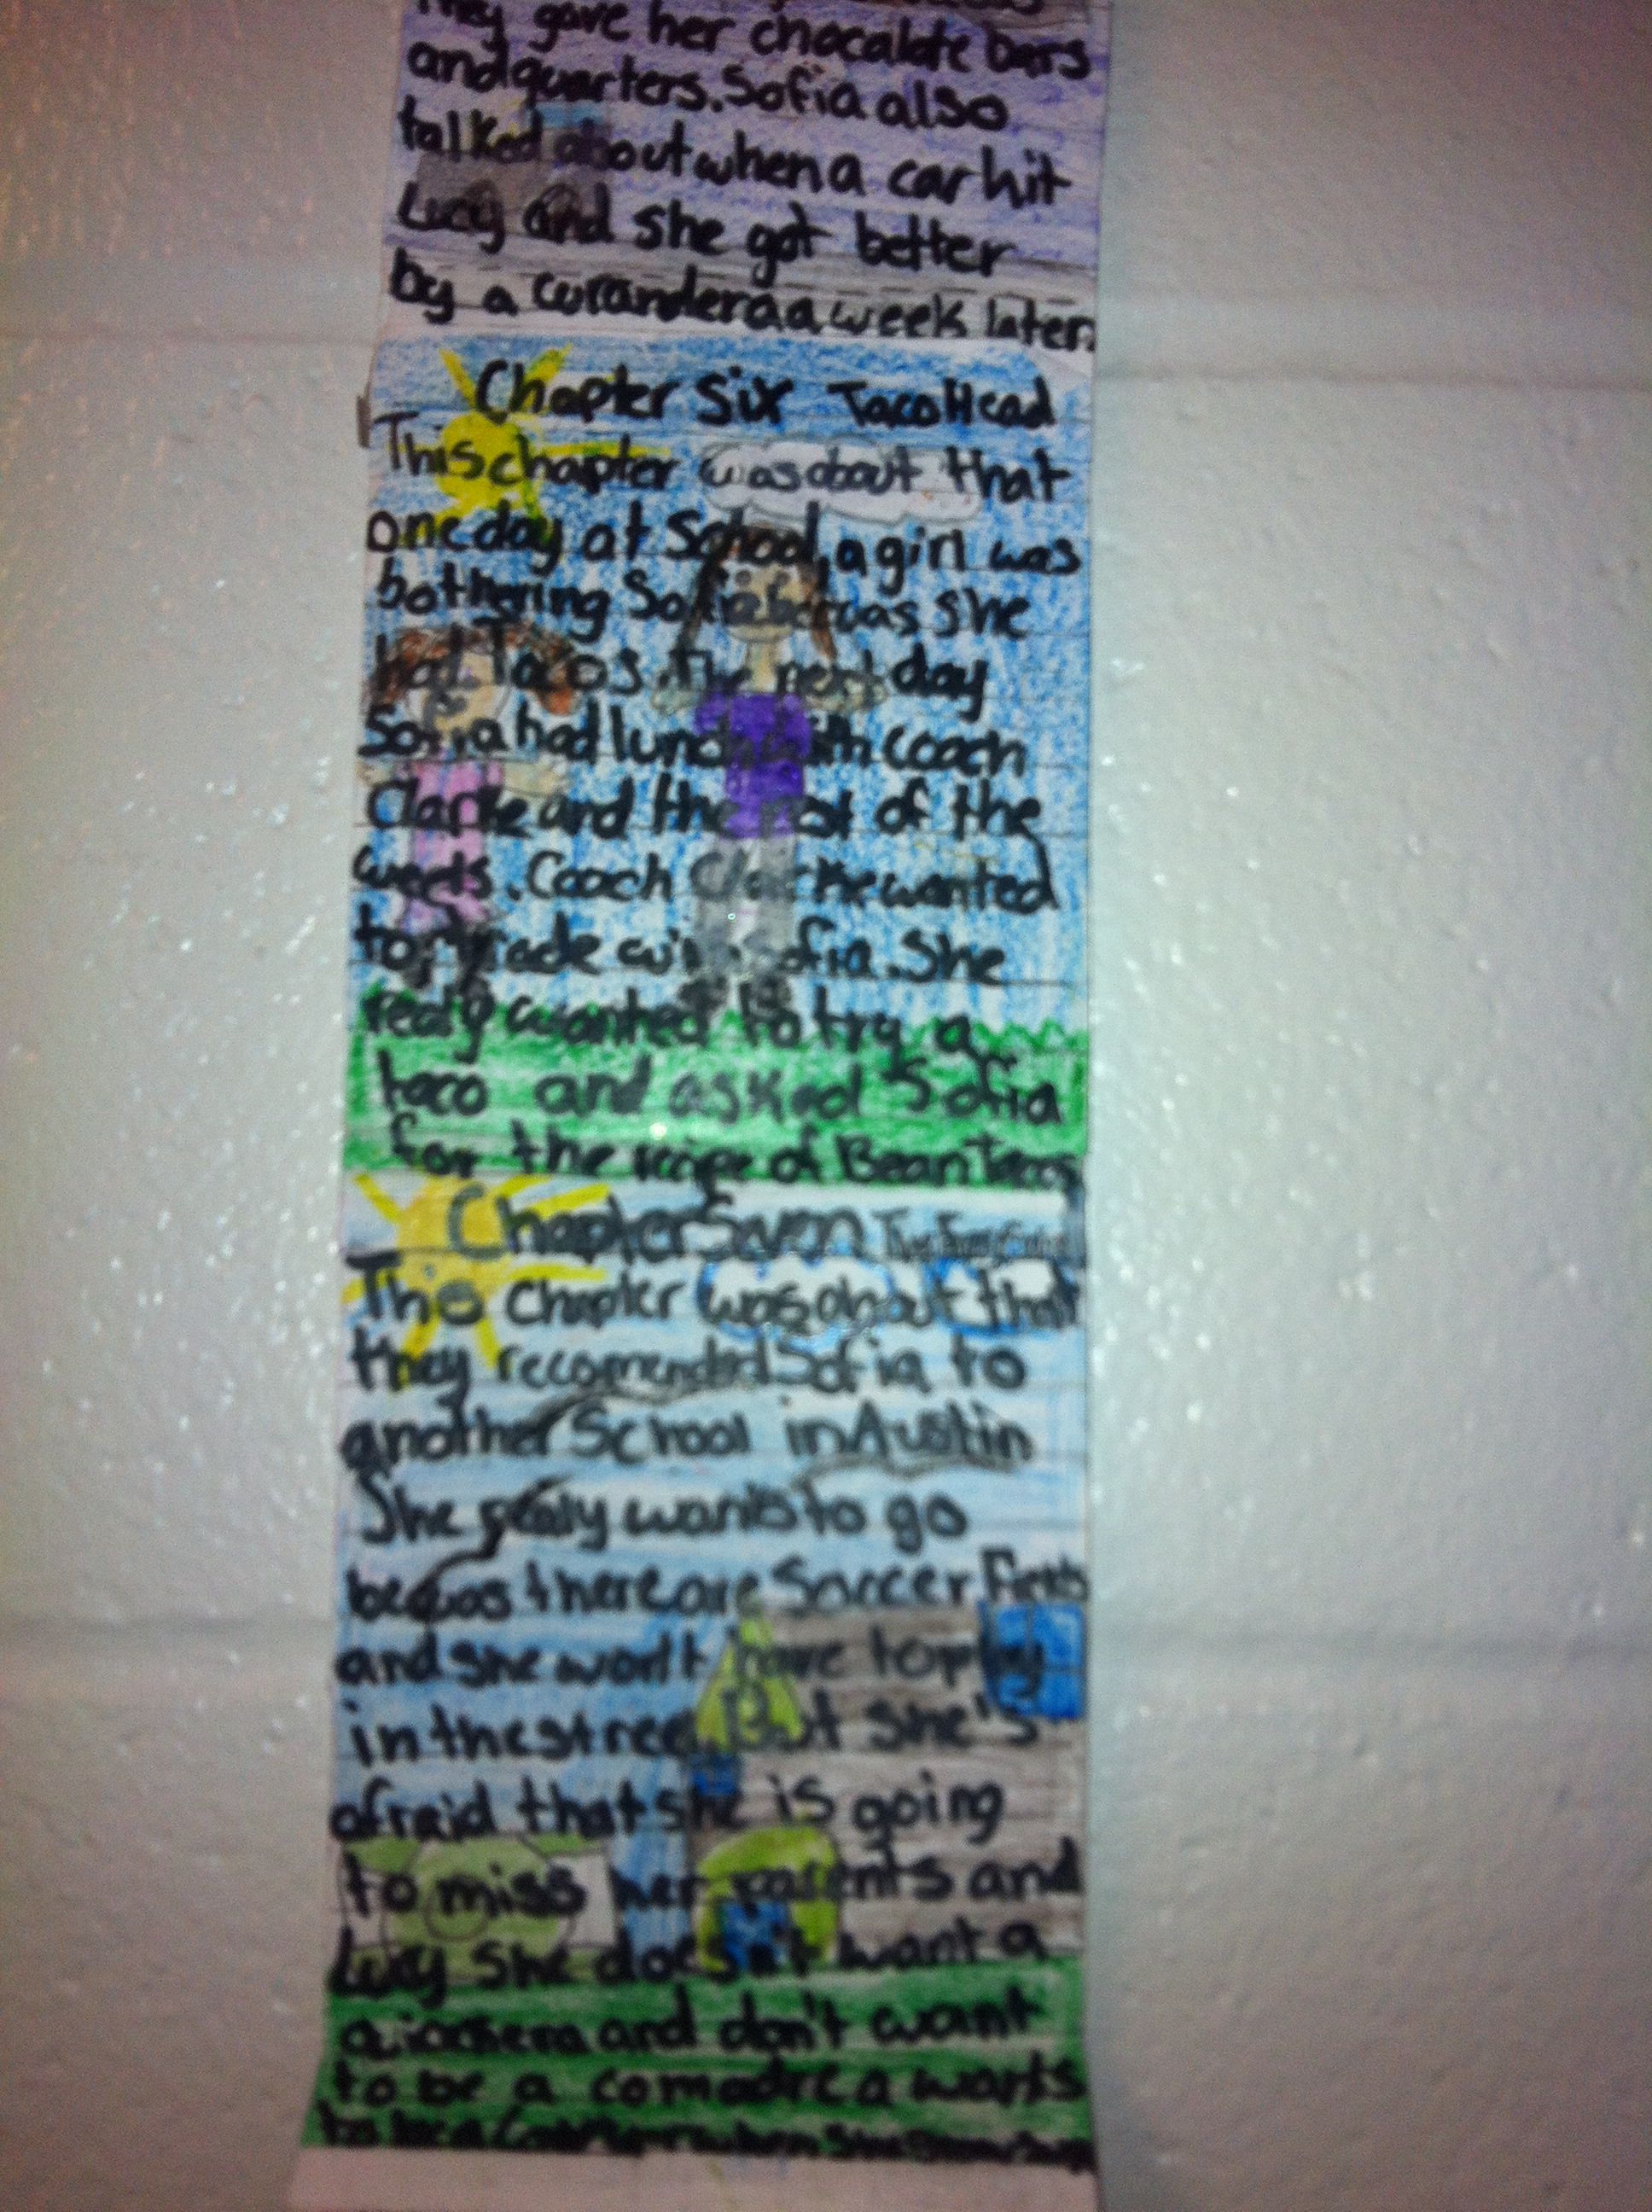 They gave her chocalate bars
and quarters. Sofia also
talked about when a car hit
Lucy and she got better
by a curandera a week later.
Chapter Six Taco Head
This chapter was about that
one day at School, a girl was
bothering Sofia becuas she
had Tacos. The next day
Sofia had lunch with coach
Clarke and the rest of the
weeks. Coach Clarke wanted
to trade with Sofia. She
realy wanted to try a
taco and asked Sofia
for the recipe of Bean Tacos
Chapter Seven
This chapter was about that
they recomended Sofia to
another School in Austin
She realy wants to go
becuas there are Soccer Fields
and she won't have to play
in the street. But she's
afraid that she is going
to miss her parents and
Lucy She doesn't want a
and don't want
to be a comadre a wants
to be a